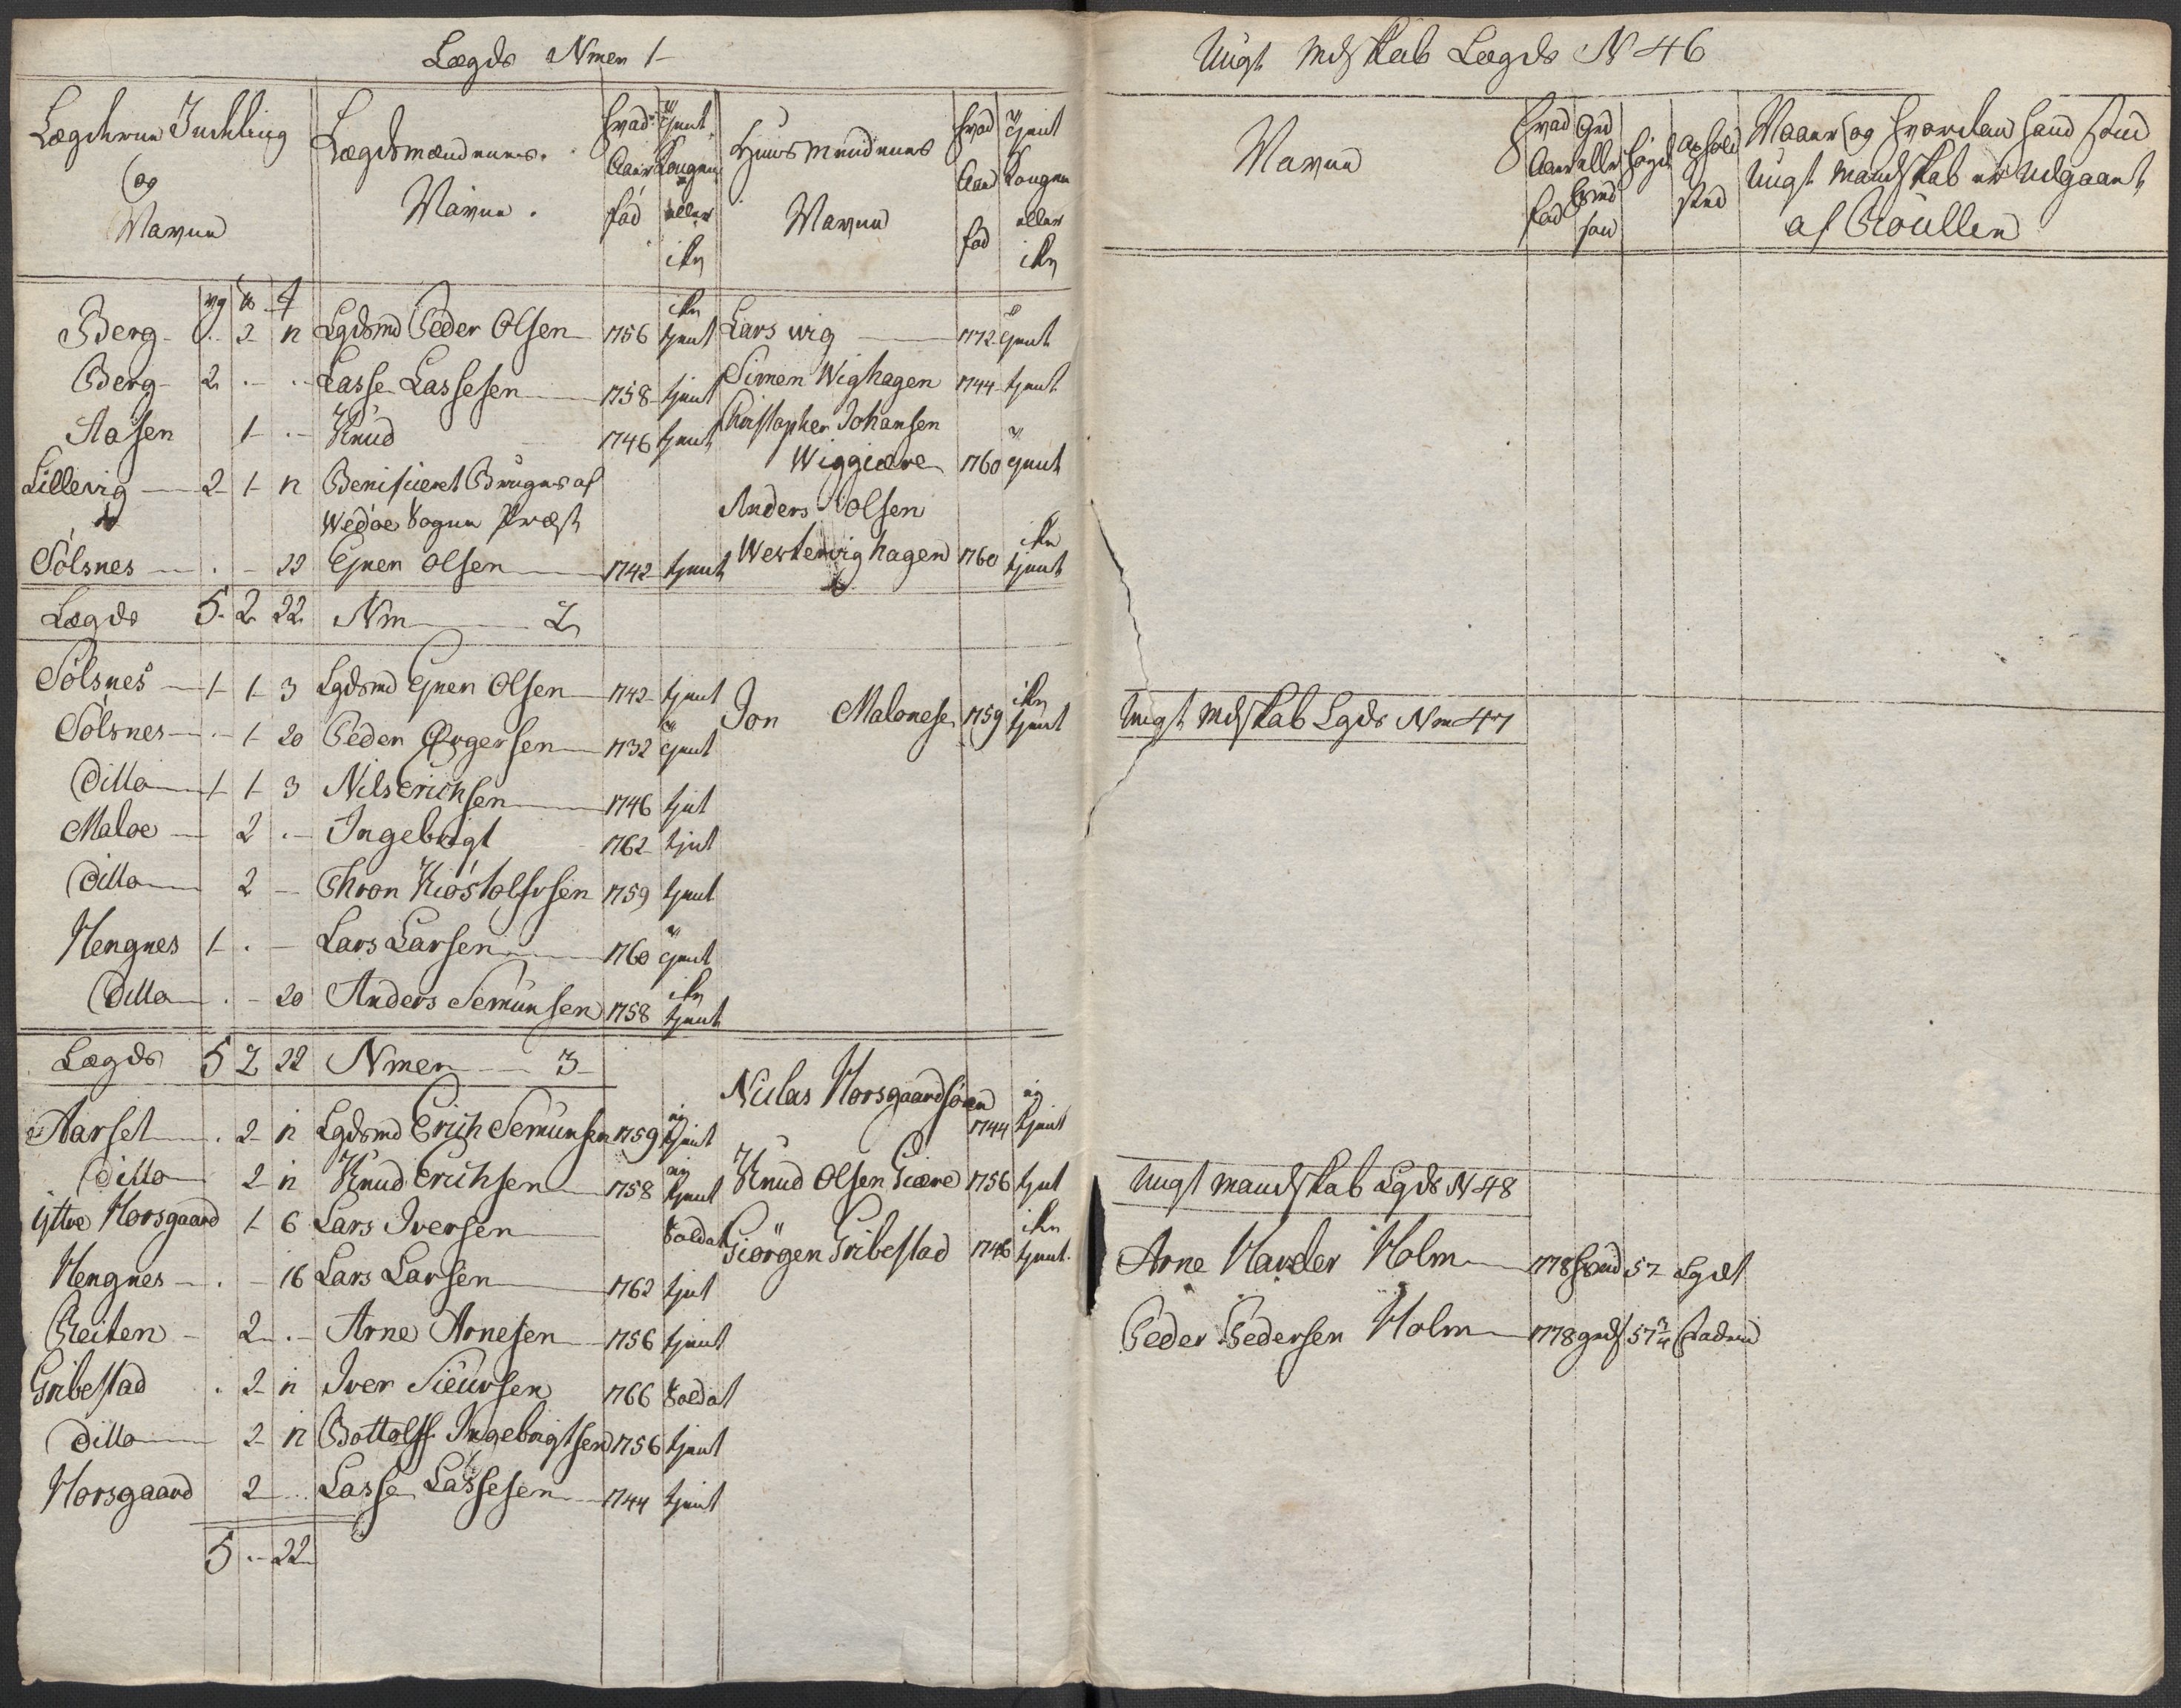 Lægds Nmer 1
Lægdernes Inddeling og Navne | Lægdsmændenes Navne | Hvad Aar fød | Tjent Kongen eller ikke | Huusmændenes Navne | Hvad Aar fød | Tjent Kongen eller ikke
vog | |
Berg . 2 n Lgdsmd Peder Olsen 1756 ikke tjent Lars wig 1772 tjent
Berg 2 . . Lasse Lassesen 1758 tjent Simen Wighagen 1744 tjent
Aasen 1 . Knud 1746 tjent Christopher Johansen
Wiggiære 1760 tjent
Lillevig 2 1 n Benificeret Bruges af
Wedøe Sogne Præst Anders Olsen
Sølsnes . - 22 Ejner Olsen 1742 tjent Westerwighagen 1760 ikke tjent
Lægds 5 2 22 Nm 2
Sølsnes 1 1 3 Lgdsmd Ejner Olsen 1742 tjent Jon Malonese 1759 ikke tjent
Sølsnes . 1 20 Peder Ørgersen 1732 tjent
Ditto 1 1 3 Nils Erichsen 1746 tjent
Maloe 2 . Ingebrigt 1762 tjent
Ditto 2 - Thron Kiøstolfvsen 1759 tjent
Hengnes 1 . - Lars Larsen 1760 tjent
Ditto . - 20 Anders Semunsen 1758 ikke tjent
Lægds 5 2 22 Nmer 3
Nielas Horsgaardsøen 1744 tjent
Aarset . 2 n Lgdsmd Erich Semunsen 1759 tjent
Ditto 2 n Knud Erichsen 1758 tjent Knud Olsen Giære 1756 tjent
ijttre Horsgaard 1 6 Lars Iversen Soldat
Giørgen Gribestad 1746 ikke tjent
Hengnes . - 16 Lars Larsen 1762 tjent
Reiten 2 . Arne Arnesen 1756 tjent
Gribestad . 2 n Iver Sieursen 1766 Soldat
Ditto 2 n Bottolf Ingebrigtsen 1756 tjent
Horsgaard 2 . Lasse Lassesen 1744 tjent
5 . 22
Ungt Mdskab Lægds N 46
Navne | Hvad Aar fød | Grd eller Hsmd søn | Høyde | Opholds sted | Naar og hvordan hand som Ungt Mandskab er Udgaaet af Roullen
Ungt Mdskab Lgds Nm 47
Ungt Mandskab Lgds N 48
Arne Harder Holm 1778 Hsmd 57 Lgdt
Peder Pedersen Holm 1778 grds 57 3/4